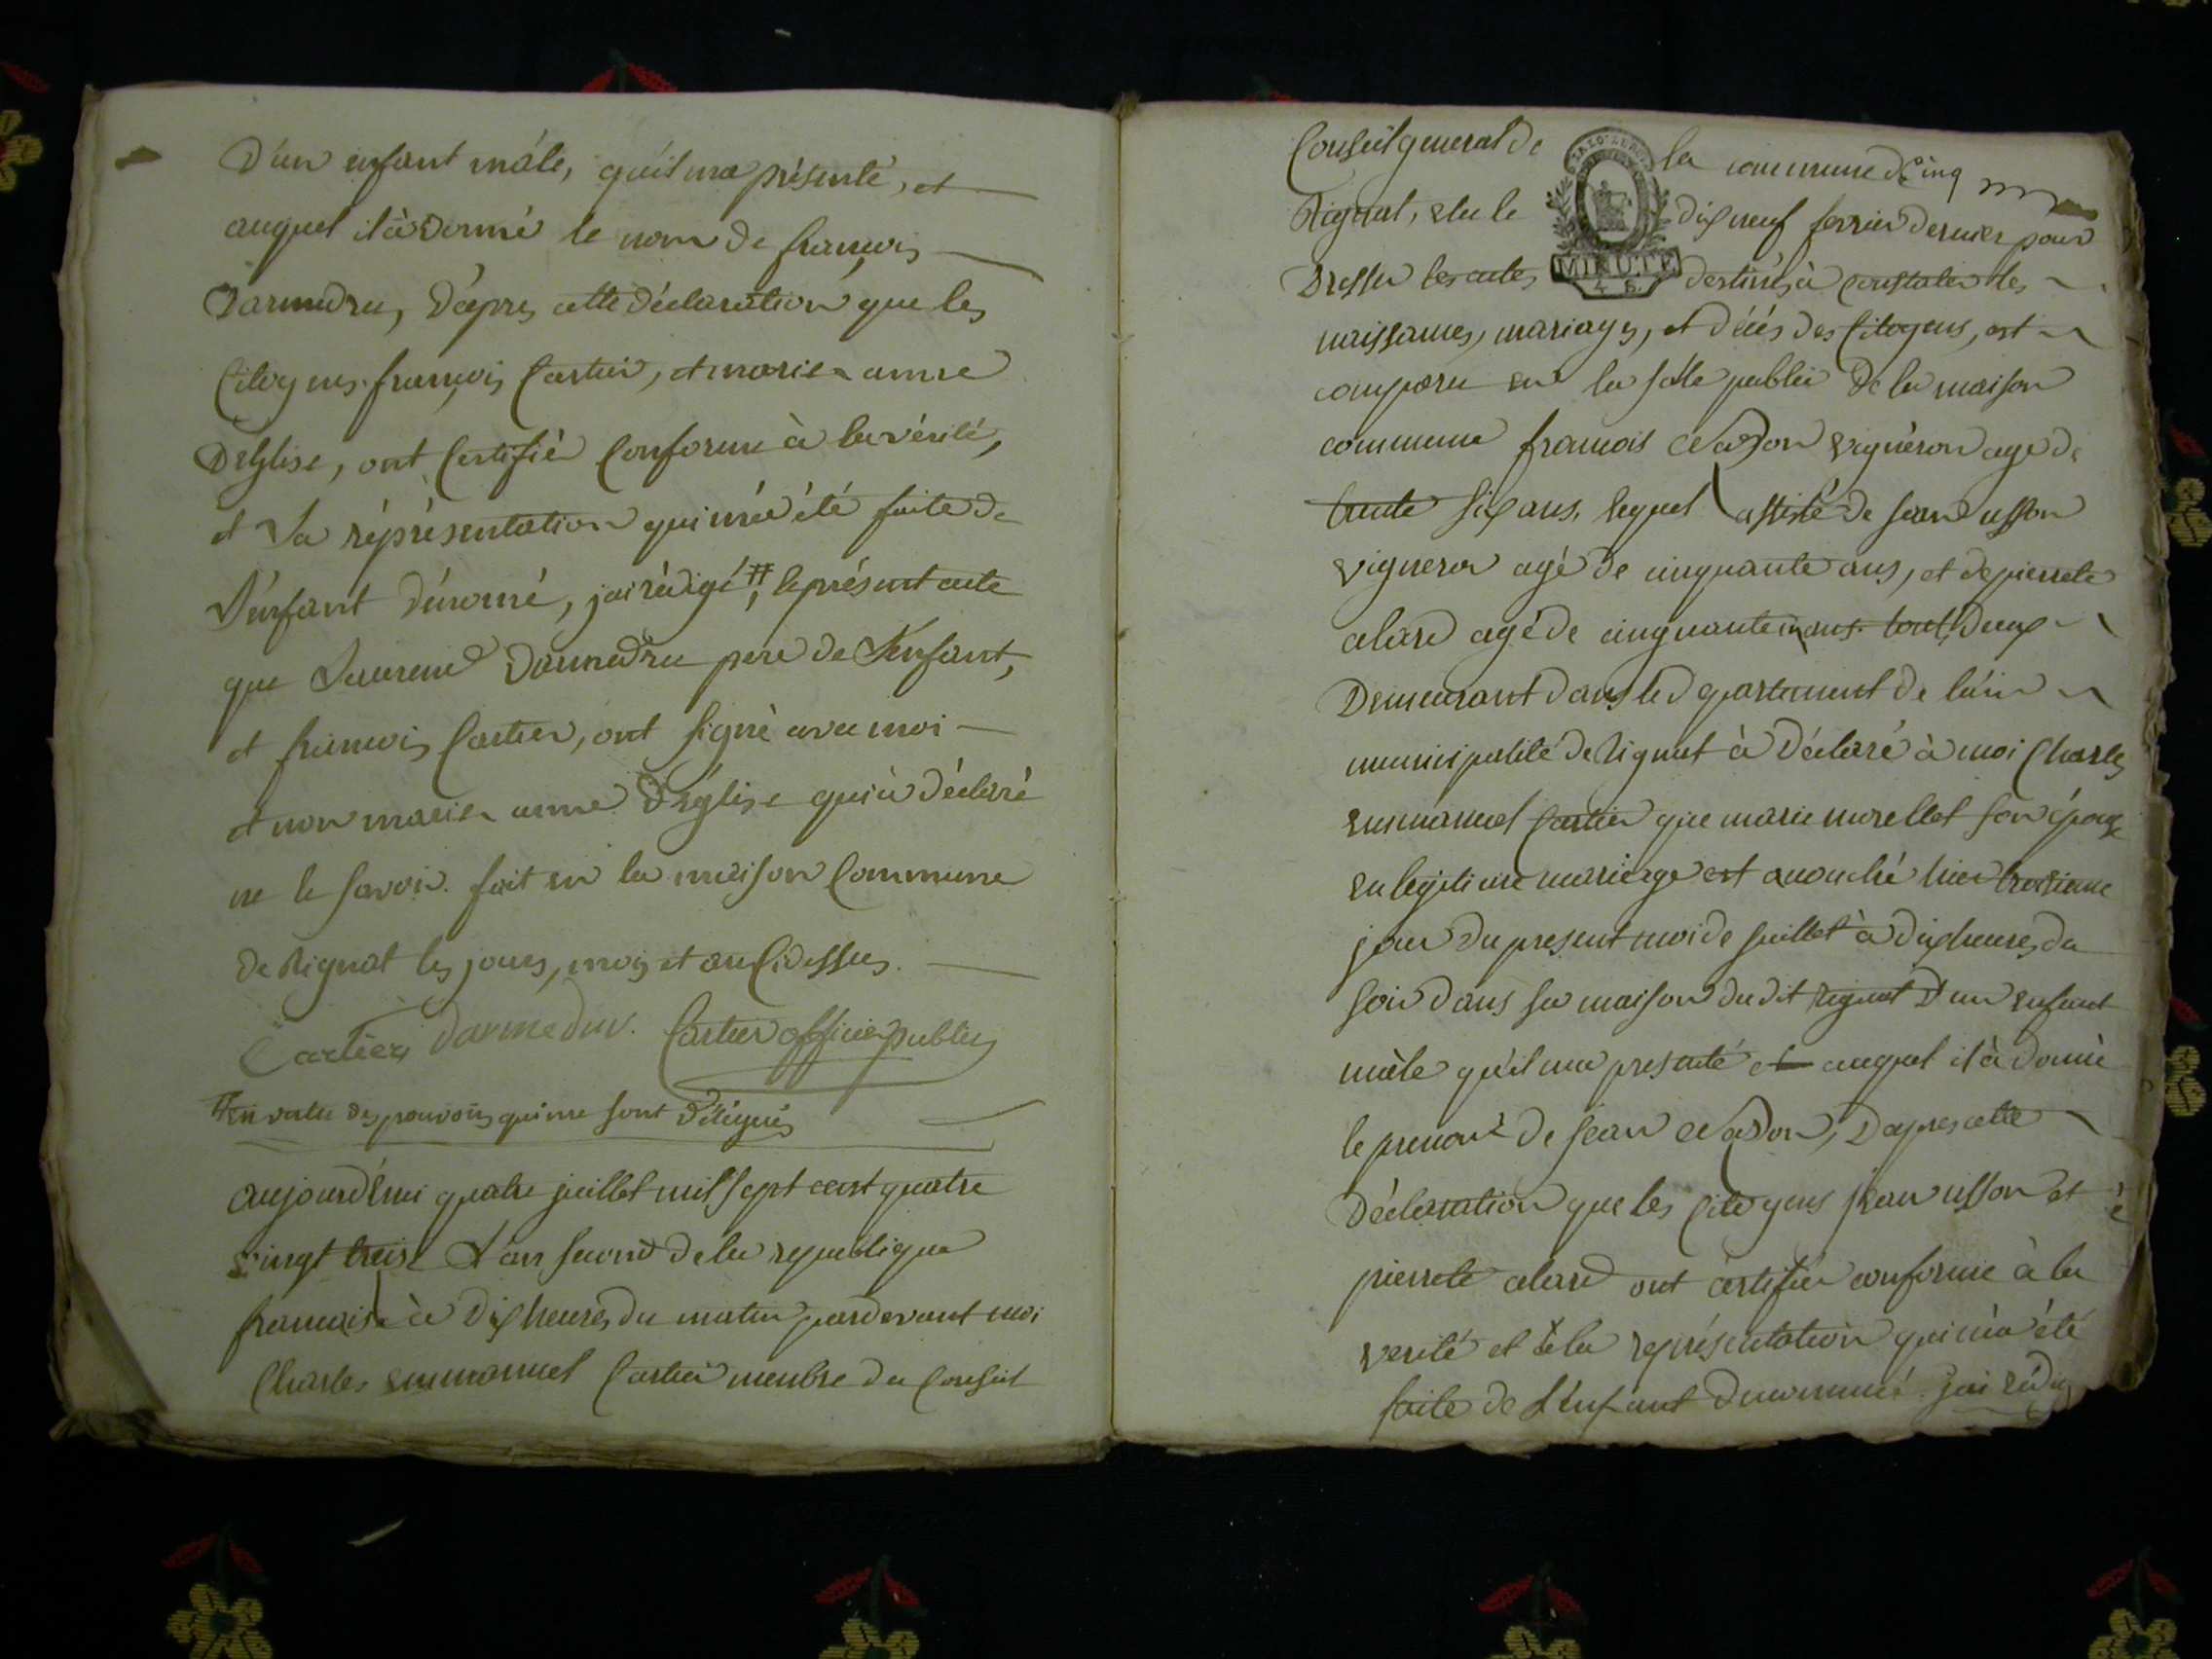 D'un enfant mâle, qu'il ma présenté, et
auquel il à donné le nom de francois
Darmedru, D'apres cette déclaration que les
Citoyens francois Cartier, et marie anne
Deglise, ont Certifié Conforme à la vérité,
et La réprésentation qui m'a été faite de
L'enfant dénomé, jai rédigé ⌗, le présent acte
que Laurend Darmedru pere de L'enfant,
et francois Cartier, ont signé avec moi
et non marie anne D'église qui à déclaré
ne le savoir. fait en la maison Commune
de Rignat les jours, mois et an Cidessus.
Cartier Darmedru. Cartier officier public
⌗ En vertu des pouvoirs qui me sont délégués
aujourd'hui quatre juillet mil sept cent quatre
vingt treise L'an second de la republique
francaise à dix heures du matin pardevant moi
Charles emmanuel Cartier membre du Conseil
Conseil general de la commune de
Rignat, elu le dix neuf fevrier dernier pour
MINUTE
4 S.
Dresser les actes destinés à Constater les
naissances, mariages, et décés des Citoyens, est
comparu en la salle public de la maison
commune francois vigneron agé de
trente six ans, lequel assisté de jean usson
vigneron agé de cinquante ans, et de pierrete
alard agé de cinquante cinq ans. tout deux
Demeurant dans le departement de l'ain
municipalité de Rignat à Déclaré à moi Charles
emmanuel Cartier que marie morellet son épouse
en legitime mariage est accouché hier troisieme
jour du present moi de juillet à dix heures du
soir dans sa maison dudit rignat D'un enfant
mâle qu'il ma presenté et auquel il à donné
le prenom de jean D'apres cette
Déclaration que les Citoyens jean usson et
pierrete alard ont certifié conforme à la
verité et à la représentation qui m'a été
faite de L'enfant denommé. jai rédigé